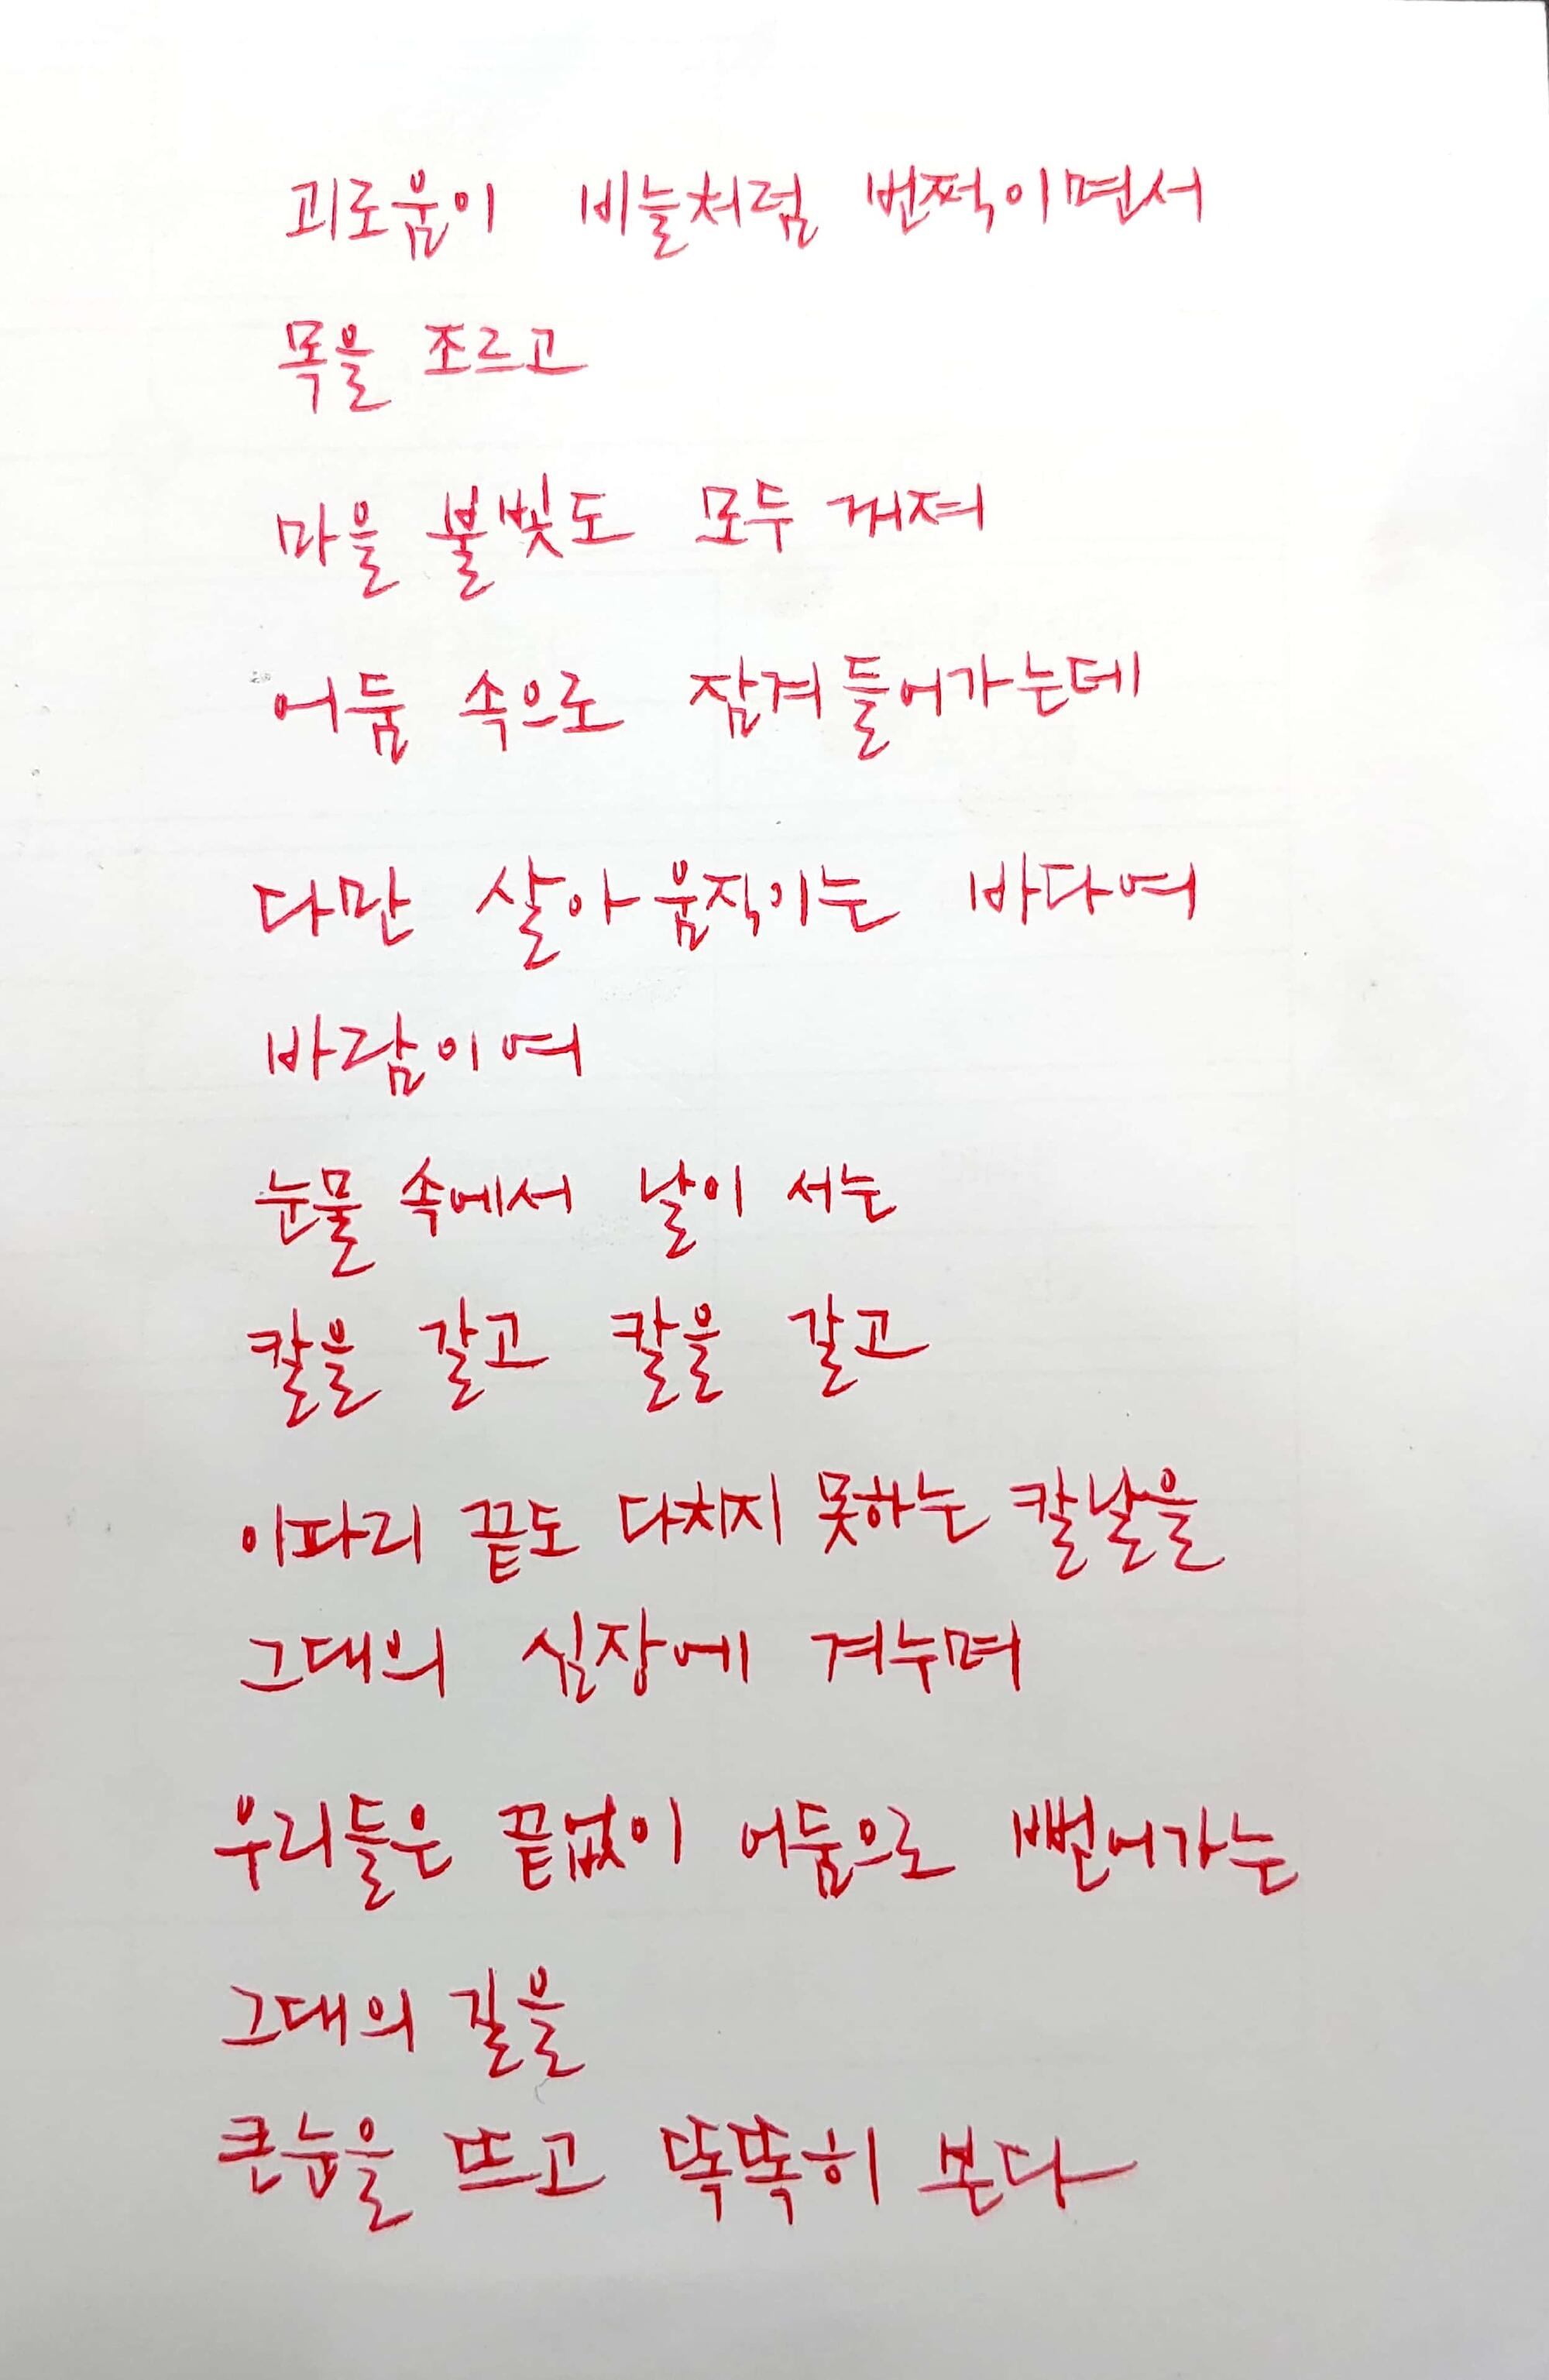 괴로움이 비늘처럼 번쩍이면서
목을 조르고
마을 불빛도 모두 꺼져
어둠 속으로 잠겨 들어가는데
다만 살아 움직이는 바다여
바람이여
눈물 속에서 날이 서는
칼을 갈고 칼을 갈고
이파리 끝도 다치지 못하는 칼날을
그대의 심장에 겨누며
우리들은 끝없이 어둠으로 뻗어가는
그대의 길을
큰눈을 뜨고 똑똑히 본다